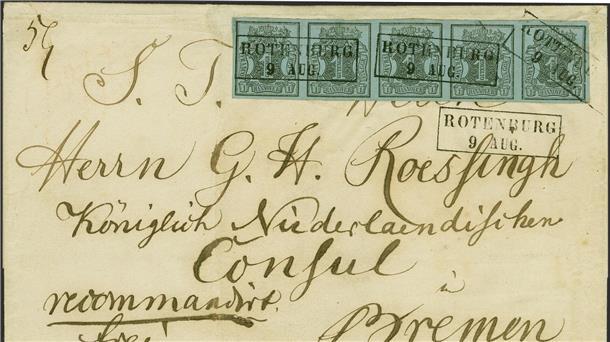 ROTENBURG
9 AUG.
ROTENBURG
9 AUG.
9 AUG.
1 1 1 1 1
ROTENBURG
9 AUG.
S. T.
Herrn G. H. Roessingh
Königlich Niederlaendischen
Consul
recommandirt.
à
frei
Bremen